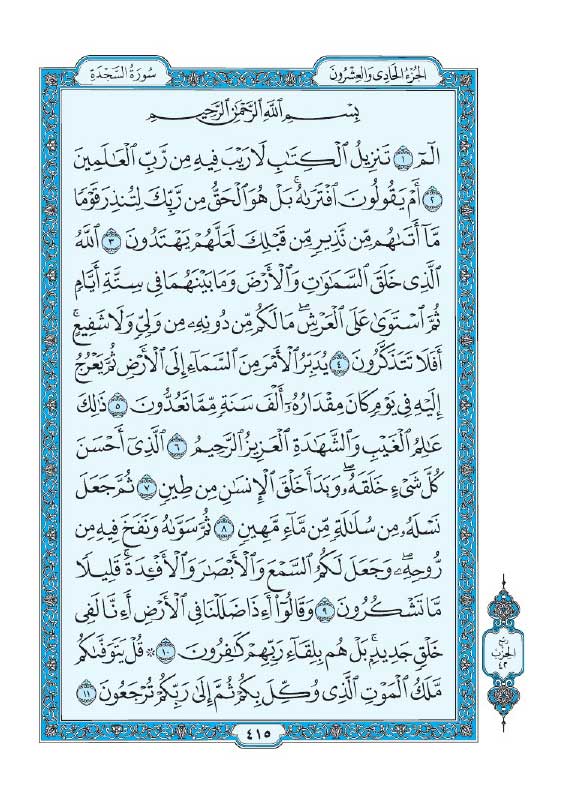 سُورَةُ السَّجْدَةِ
الجُزْءُ الحَادِي وَالعِشْرُونَ
بِسْمِ ٱللَّهِ ٱلرَّحْمَٰنِ ٱلرَّحِيمِ
الٓمٓ ١ تَنزِيلُ ٱلْكِتَٰبِ لَا رَيْبَ فِيهِ مِن رَّبِّ ٱلْعَٰلَمِينَ
٢ أَمْ يَقُولُونَ ٱفْتَرَىٰهُ ۚ بَلْ هُوَ ٱلْحَقُّ مِن رَّبِّكَ لِتُنذِرَ قَوْمًا
مَّآ أَتَىٰهُم مِّن نَّذِيرٍ مِّن قَبْلِكَ لَعَلَّهُمْ يَهْتَدُونَ ٣ ٱللَّهُ
ٱلَّذِى خَلَقَ ٱلسَّمَٰوَٰتِ وَٱلْأَرْضَ وَمَا بَيْنَهُمَا فِى سِتَّةِ أَيَّامٍ
ثُمَّ ٱسْتَوَىٰ عَلَى ٱلْعَرْشِ ۖ مَا لَكُم مِّن دُونِهِۦ مِن وَلِىٍّ وَلَا شَفِيعٍ ۚ
أَفَلَا تَتَذَكَّرُونَ ٤ يُدَبِّرُ ٱلْأَمْرَ مِنَ ٱلسَّمَآءِ إِلَى ٱلْأَرْضِ ثُمَّ يَعْرُجُ
إِلَيْهِ فِى يَوْمٍ كَانَ مِقْدَارُهُۥٓ أَلْفَ سَنَةٍ مِّمَّا تَعُدُّونَ ٥ ذَٰلِكَ
عَٰلِمُ ٱلْغَيْبِ وَٱلشَّهَٰدَةِ ٱلْعَزِيزُ ٱلرَّحِيمُ ٦ ٱلَّذِىٓ أَحْسَنَ
كُلَّ شَىْءٍ خَلَقَهُۥ ۖ وَبَدَأَ خَلْقَ ٱلْإِنسَٰنِ مِن طِينٍ ٧ ثُمَّ جَعَلَ
نَسْلَهُۥ مِن سُلَٰلَةٍ مِّن مَّآءٍ مَّهِينٍ ٨ ثُمَّ سَوَّىٰهُ وَنَفَخَ فِيهِ مِن
رُّوحِهِۦ ۖ وَجَعَلَ لَكُمُ ٱلسَّمْعَ وَٱلْأَبْصَٰرَ وَٱلْأَفْـِٔدَةَ ۚ قَلِيلًا
مَّا تَشْكُرُونَ ٩ وَقَالُوٓا۟ أَءِذَا ضَلَلْنَا فِى ٱلْأَرْضِ أَءِنَّا لَفِى
خَلْقٍ جَدِيدٍۭ ۚ بَلْ هُم بِلِقَآءِ رَبِّهِمْ كَٰفِرُونَ ١٠ ۞ قُلْ يَتَوَفَّىٰكُم
مَّلَكُ ٱلْمَوْتِ ٱلَّذِى وُكِّلَ بِكُمْ ثُمَّ إِلَىٰ رَبِّكُمْ تُرْجَعُونَ ١١
ربع
الحزب
٤٢
٤١٥